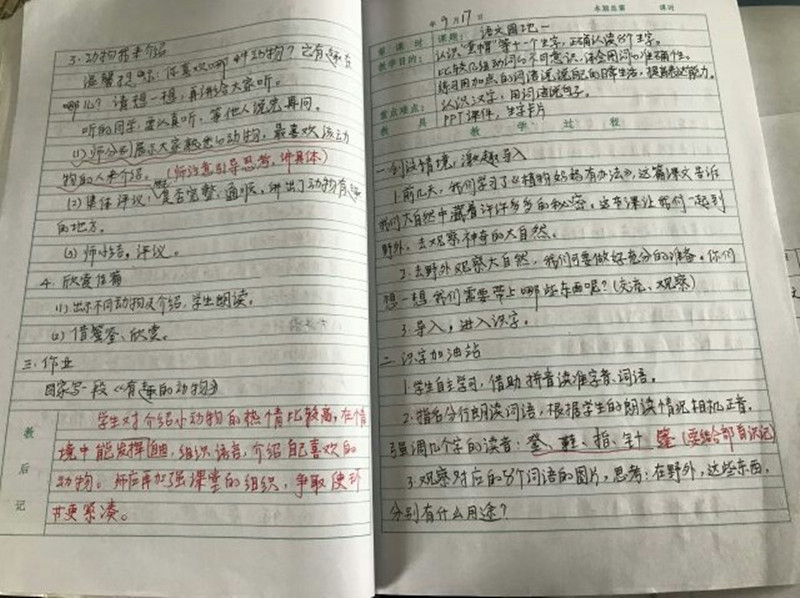 3. 动物我来介绍
温馨提示：你喜欢哪种动物？它有趣在
哪儿？请想一想，再讲给大家听。
听的同学，要认真听，等他人说完再问。
(1) 师分别展示大家熟悉的动物，最喜欢该动
物的人来介绍。(师注意引导思考，讲具体)
(2) 集体评议：是否完整、通顺，讲出了动物有趣
的地方。
(3) 师小结，评议。
4. 欣赏佳篇
(1) 出示不同动物及介绍，学生朗读。
(2) 借鉴、欣赏。
三、作业
回家写一段《有趣的动物》
教后记
学生对介绍小动物的热情比较高，在情
境中能发挥自由，组织语言，介绍自己喜欢的
动物。师应再加强课堂的组织，争取使环
节更紧凑。
年9月17日 本期总第 课时
第 课时 课题：语文园地一
教学目的：认识“ ”等十一个生字，正确认读8个生字。
比较几组动词的不同意识，体会用词的准确性。
练习用加点的词语说说自己的日常生活，提高表达能力。
重点难点：认识汉字，用词语说句子。
教具 PPT课件，生字卡片
教 学 过 程
一、创设情境，激趣导入
1. 前几天，我们学习了《植物妈妈有办法》，这篇课文告诉
我们大自然中藏着许许多多的秘密。这节课让我们一起到
野外，去观察神奇的大自然。
2. 去野外观察大自然，我们可要做好充分的准备。你们
想一想我们需要带上哪些东西呢？(交流、观察)
3. 导入，进入识字。
二、识字加油站
1. 学生自主学习，借助拼音读准字音、词语。
2. 指名分行朗读词语，根据学生的朗读情况相机正音。
强调几个字的读音：登、鞋、指、针 篷 (要结合部首识记)
3. 观察对应的8个词语的图片，思考：在野外，这些东西，
分别有什么用途？